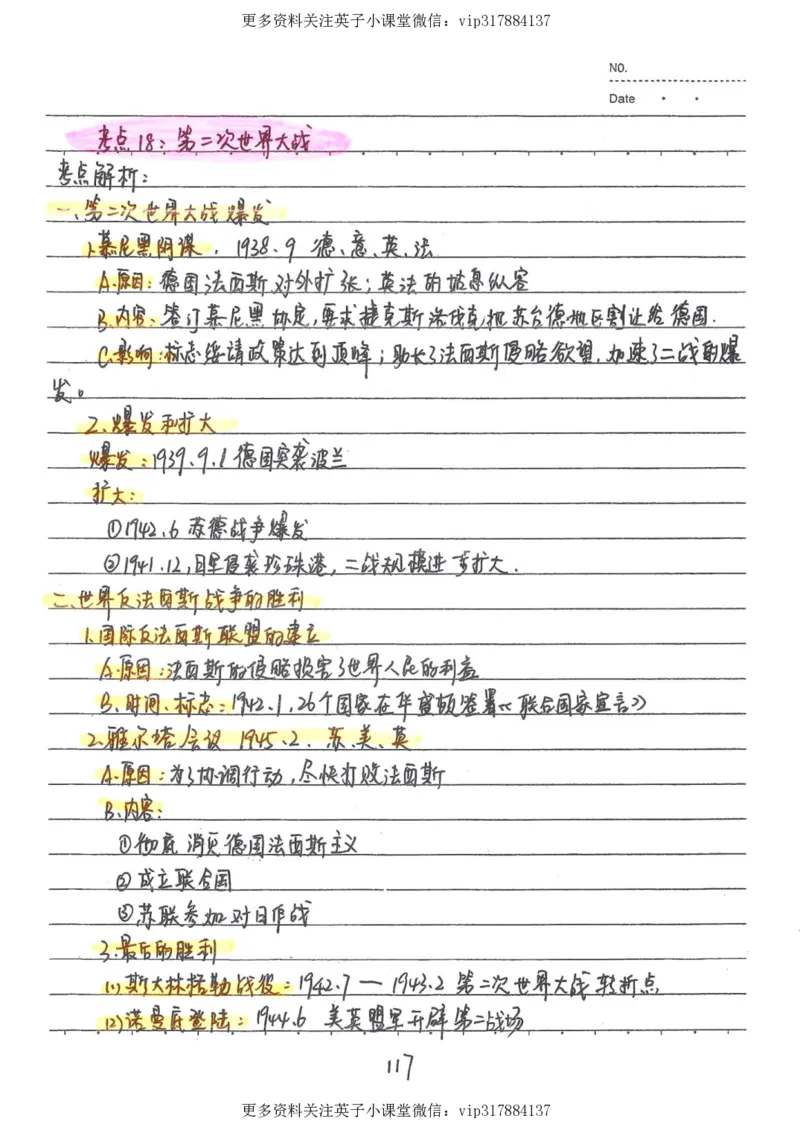 更多资料关注英子小课堂微信：vip317884137
NO.
Date
考点18：第二次世界大战
考点解析：
一、第二次世界大战爆发
1.慕尼黑阴谋，1938.9 德、意、英、法
A.原因：德国法西斯对外扩张；英法的姑息纵容
B.内容：签订慕尼黑协定，要求捷克斯洛伐克把苏台德地区割让给德国.
C.影响：标志绥靖政策达到顶峰；助长了法西斯侵略欲望，加速了二战的爆
发。
2.爆发和扩大
爆发：1939.9.1德国突袭波兰
扩大：
①1942.6 苏德战争爆发
②1941.12，日军偷袭珍珠港，二战规模进一步扩大.
二、世界反法西斯战争的胜利
1.国际反法西斯联盟的建立
A.原因：法西斯的侵略损害了世界人民的利益
B.时间、标志：1942.1，26个国家在华盛顿签署《联合国家宣言》
2.雅尔塔会议 1945.2. 苏、美、英
A.原因：为了协调行动，尽快打败法西斯
B.内容：
①彻底消灭德国法西斯主义
②成立联合国
③苏联参加对日作战
3.最后的胜利
(1)斯大林格勒战役：1942.7—1943.2 第二次世界大战转折点
(2)诺曼底登陆：1944.6 美英盟军开辟第二战场
117
更多资料关注英子小课堂微信：vip317884137